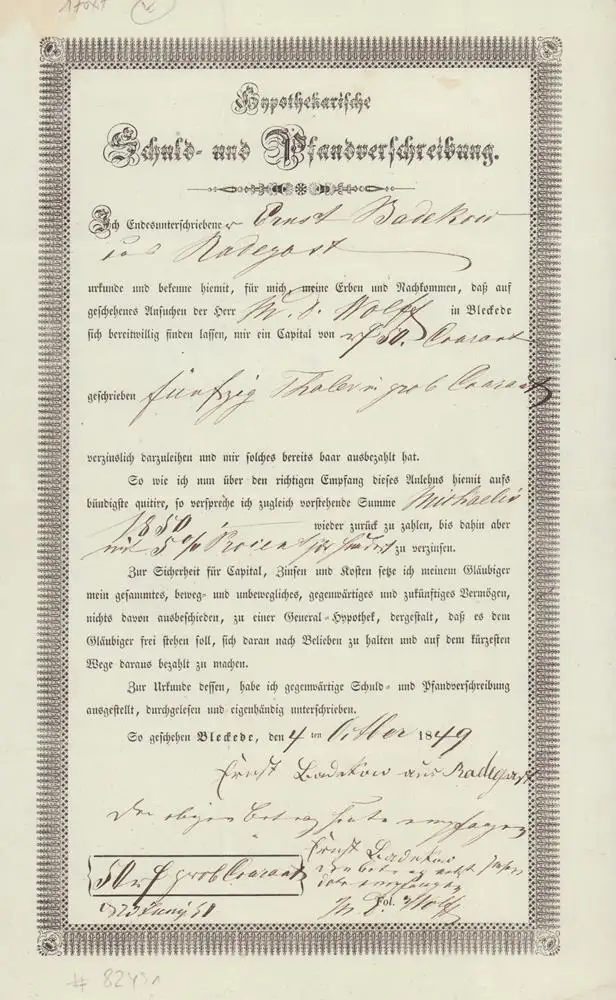 Hypothekarische
Schuld- und Pfandverschreibung.
Ich Endesunterschriebener Ernst Badekow
aus Radegast
urkunde und bekenne hiemit, für mich, meine Erben und Nachkommen, daß auf
geschehenes Ansuchen der Herr M. S. Wolff in Bleckede
sich bereitwillig finden lassen, mir ein Capital von 50. Courant
geschrieben fünfzig Thaler in grob Courant
verzinslich darzuleihen und mir solches bereits baar ausbezahlt hat.
So wie ich nun über den richtigen Empfang dieses Anlehns hiemit aufs
bündigste quitire, so verspreche ich zugleich vorstehende Summe Michaelis
1850 wieder zurück zu zahlen, bis dahin aber
mit 5 % Procent zu verzinsen.
Zur Sicherheit für Capital, Zinsen und Kosten setze ich meinem Gläubiger
mein gesammtes, beweg- und unbewegliches, gegenwärtiges und zukünftiges Vermögen,
nichts davon ausbeschieden, zu einer General-Hypothek, dergestalt, daß es dem
Gläubiger frei stehen soll, sich daran nach Belieben zu halten und auf dem kürzesten
Wege daraus bezahlt zu machen.
Zur Urkunde dessen, habe ich gegenwärtige Schuld- und Pfandverschreibung
ausgestellt, durchgelesen und eigenhändig unterschrieben.
So geschehen Bleckede, den 4 ten October 1849
Ernst Badekow aus Radegast
Den obigen Betrag heute empfangen
Ernst Badekow
50 grob Courant
empfangen
d 23 Juny 51
Fol.
Wolff
# 8245